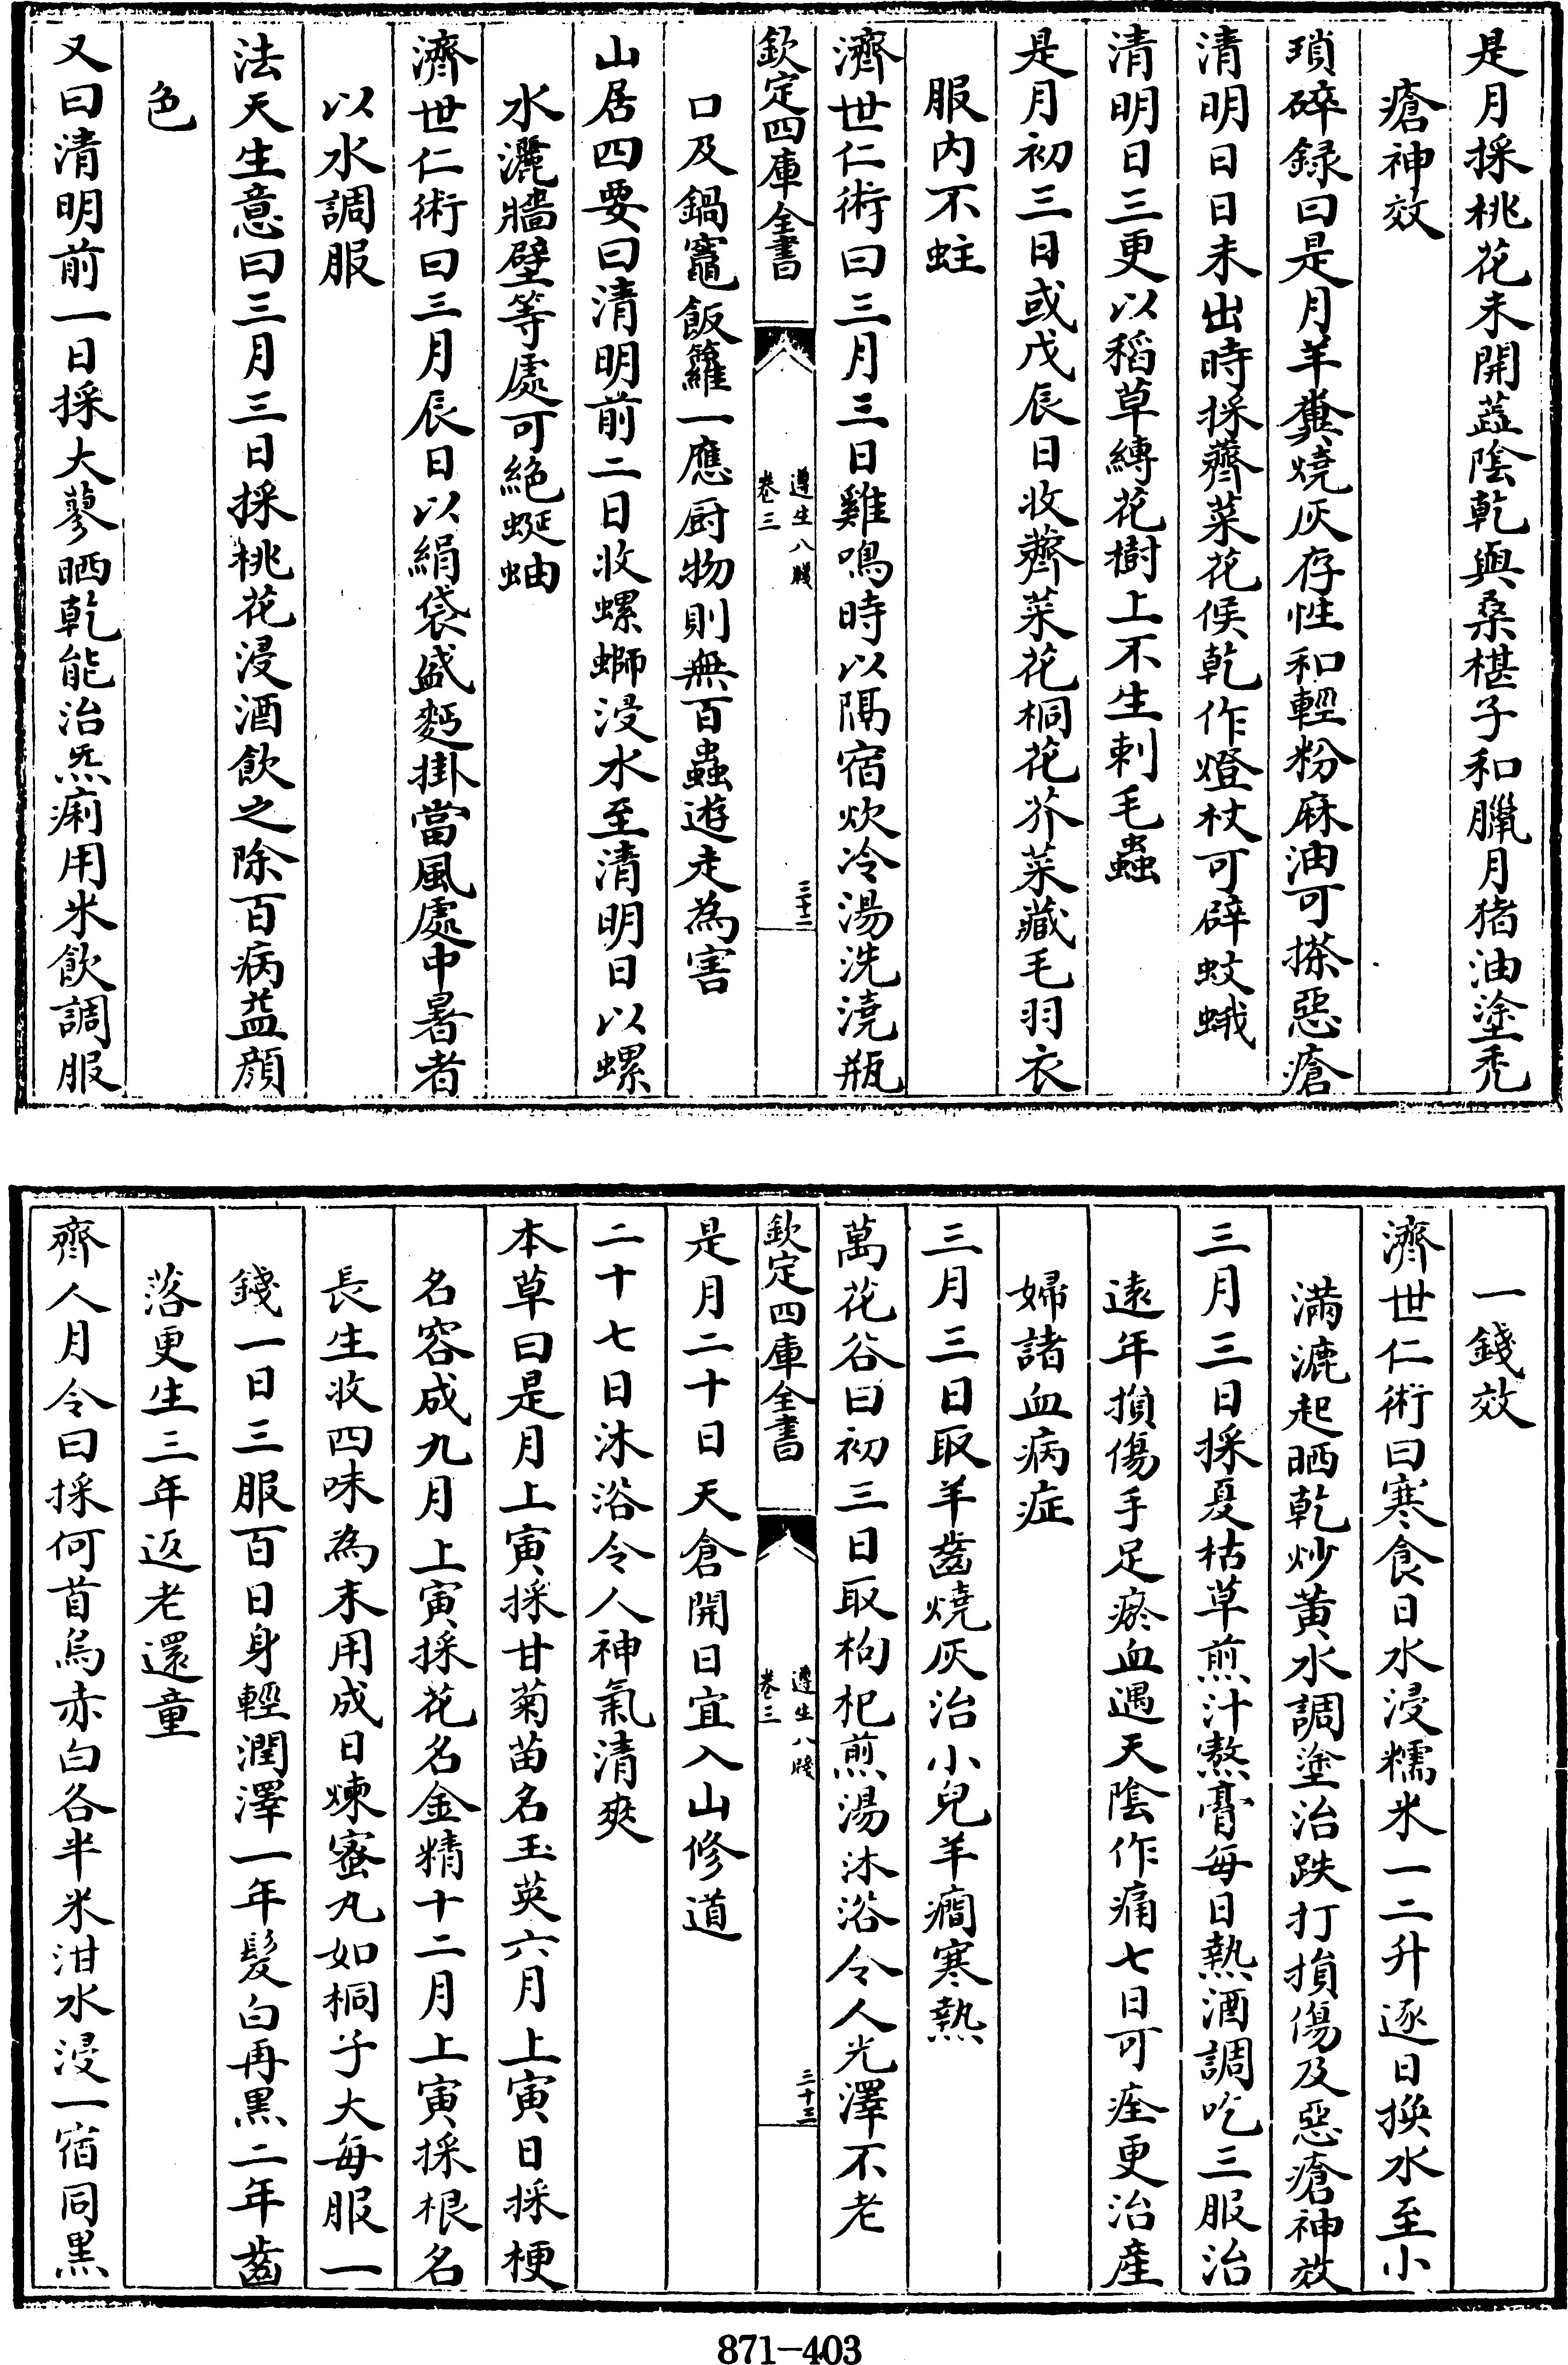 是月採桃花未開蕋陰乾與桑椹子和臘月猪油塗秃
瘡神效
瑣碎録曰是月羊糞燒灰存性和輕粉麻油可搽惡瘡
清明日日未出時採薺菜花候乾作燈杖可辟蚊蛾
清明日三更以稻草縛花樹上不生刺毛蟲
是月初三日或戊辰日收薺菜花桐花芥菜藏毛羽衣
服内不蛀
濟世仁術曰三月三日雞鳴時以隔宿炊冷湯洗澆瓶
欽定四庫全書
遵生八牋
卷三
三十二
口及鍋竈飯籮一應厨物則無百蟲遊走為害
山居四要曰清明前二日收螺螄浸水至清明日以螺
水灑牆壁等處可絶蜒蚰
濟世仁術曰三月辰日以絹袋盛麪掛當風處中暑者
以水調服
法天生意曰三月三日採桃花浸酒飲之除百病益顔
色
又曰清明前一日採大蓼晒乾能治炁痢用米飲調服
一錢效
濟世仁術曰寒食日水浸糯米一二升逐日換水至小
滿漉起晒乾炒黄水調塗治跌打損傷及惡瘡神效
三月三日採夏枯草煎汁熬膏每日熱酒調吃三服治
遠年損傷手足瘀血遇天陰作痛七日可痊更治産
婦諸血病症
三月三日取羊齒燒灰治小兒羊癇寒熱
萬花谷曰初三日取枸杞煎湯沐浴令人光澤不老
欽定四庫全書
遵生八牋
卷三
三十三
是月二十日天倉開日宜入山修道
二十七日沐浴令人神氣清爽
本草曰是月上寅採甘菊苗名玉英六月上寅日採梗
名容成九月上寅採花名金精十二月上寅採根名
長生收四味為末用成日煉蜜丸如桐子大每服一
錢一日三服百日身輕潤澤一年髮白再黑二年齒
落更生三年返老還童
齊人月令曰採何首烏赤白各半米泔水浸一宿同黑
871-403